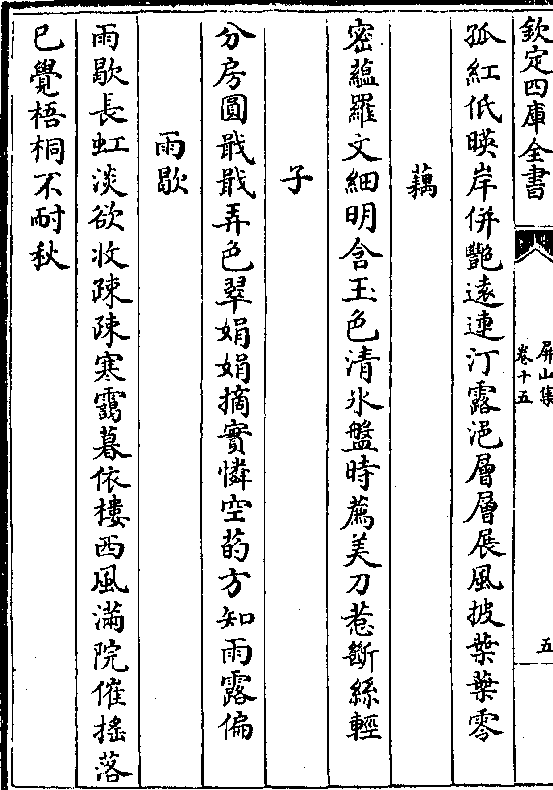 欽定四庫全書
屏山集
卷十五
五
孤紅低暎岸併豔遠連汀露浥層層展風披葉葉零
藕
密藴羅文細明含玉色清氷盤時薦美刀惹斷絲輕
子
分房圓戢戢弄色翠娟娟摘實憐空菂方知雨露偏
雨歇
雨歇長虹淡欲收踈踈寒靄暮依樓西風滿院催揺落
已覺梧桐不耐秋